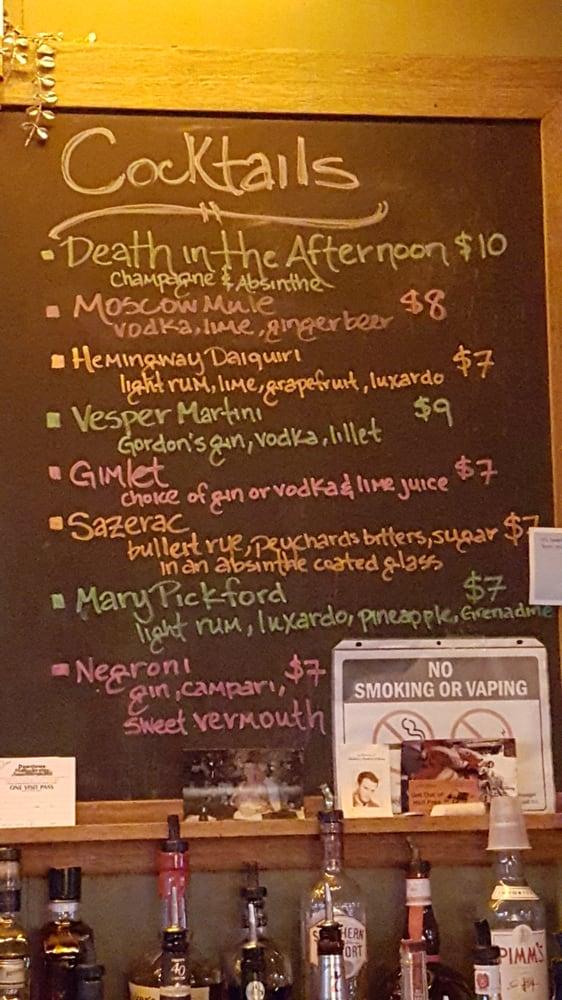 Cocktails
Death in the Afternoon $10
Champagne & Absinthe
Moscow Mule $8
vodka, lime, ginger beer
Hemingway Daiquiri $7
light rum, lime, grapefruit, luxardo
Vesper Martini $9
Gordon's gin, vodka, lillet
Gimlet $7
choice of gin or vodka & lime juice
Sazerac $7
bullert rye, peychards bitters, sugar
in an absinthe coated glass
Mary Pickford $7
light rum, luxardo, pineapple, Grenadine
Negroni $7
gin, campari,
sweet vermouth
NO
SMOKING OR VAPING
ONE VISIT PASS
40
PIMM'S